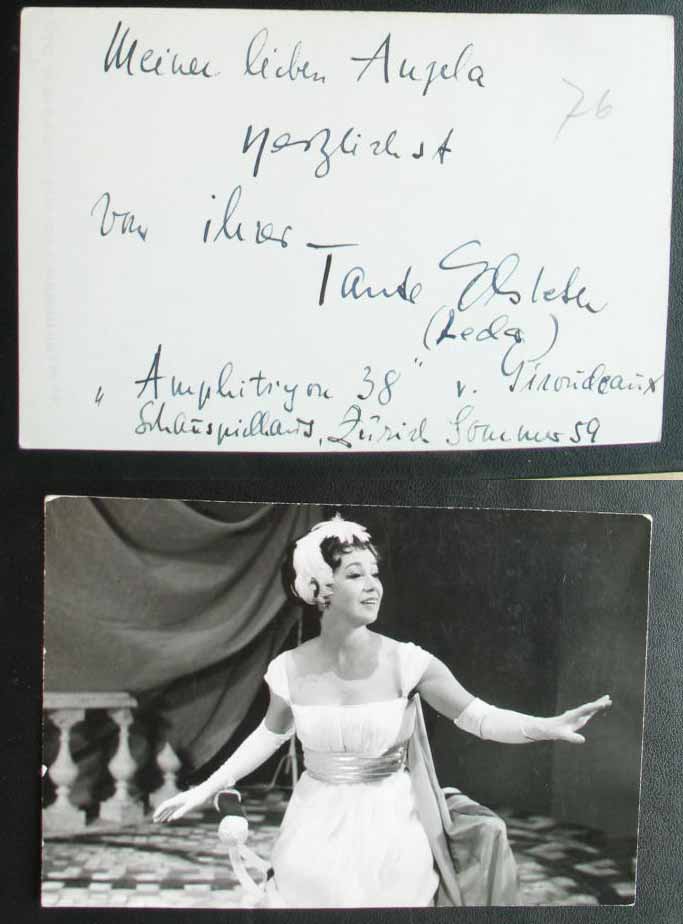 Meiner lieben Angela
76
herzlichst
von ihrer
Tante
(Leda)
„Amphitryon 38" v. Giroudeaux
Schauspielhaus, Zürich Sommer 59